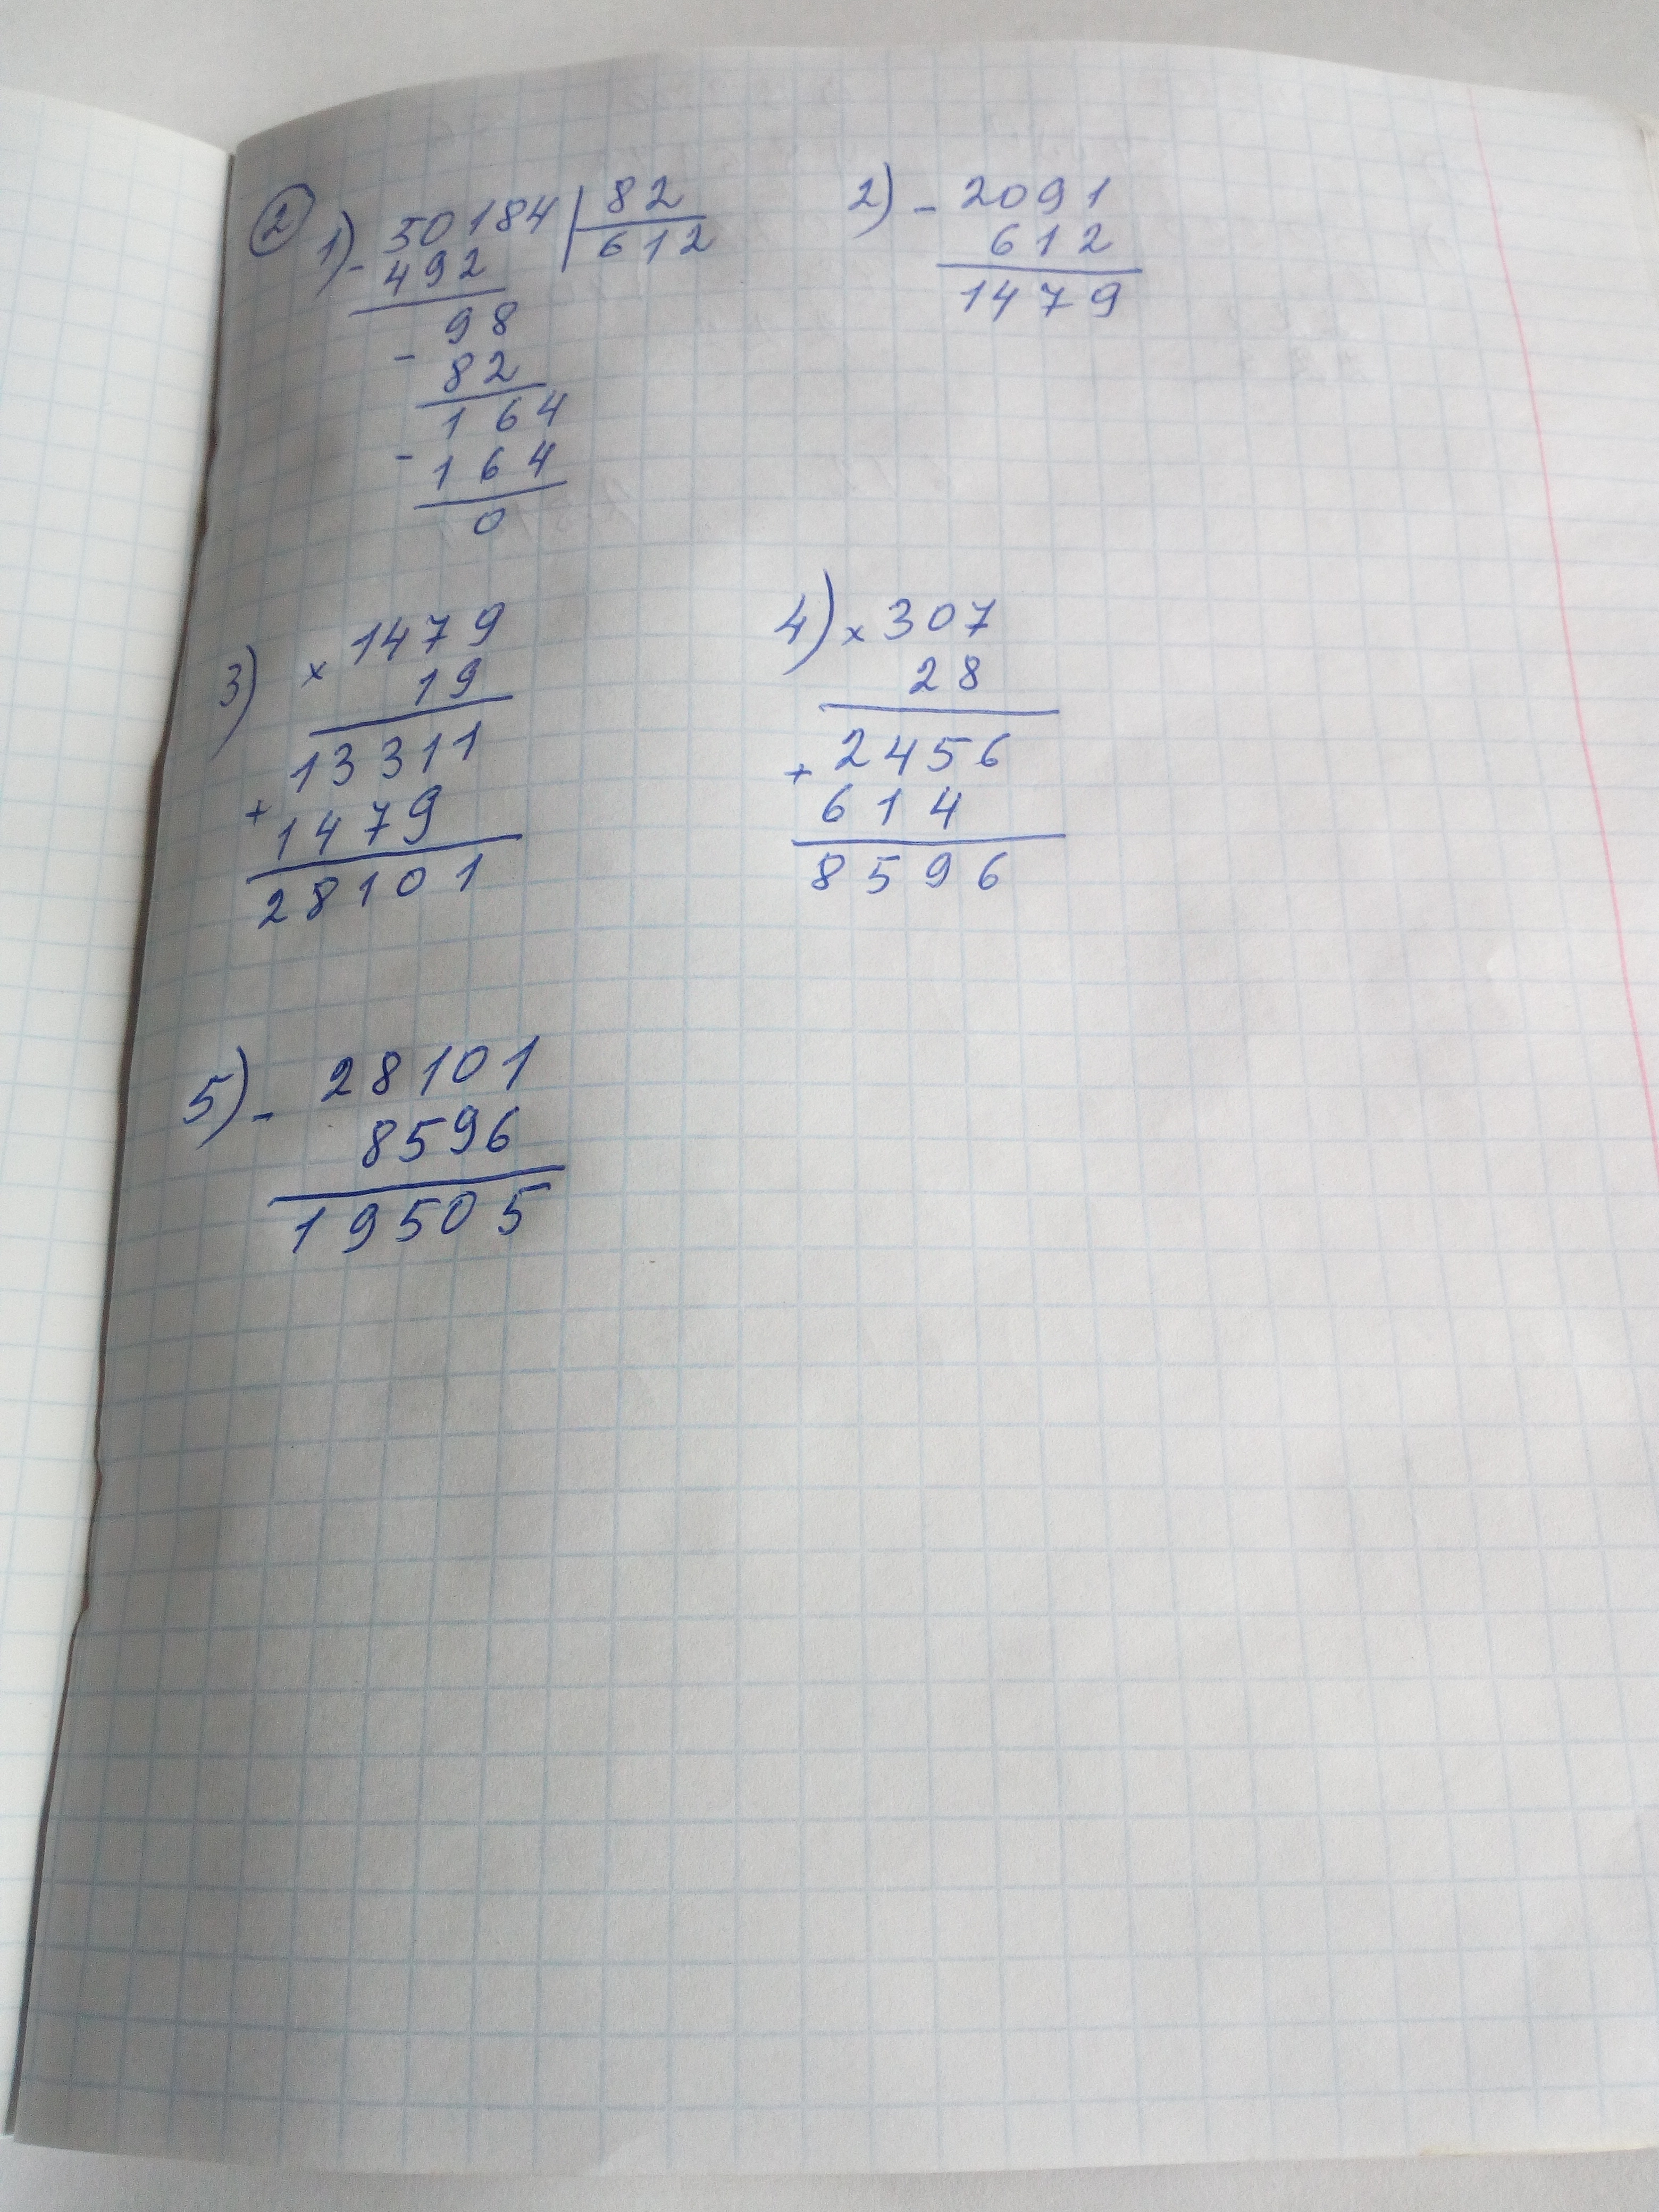 2 1) - 50184 | 82
492 612
98
- 82
164
- 164
0
2) - 2091
612
1479
3) × 1479
19
13311
+ 1479
28101
4) × 307
28
2456
+ 614
8596
5) - 28101
8596
19505